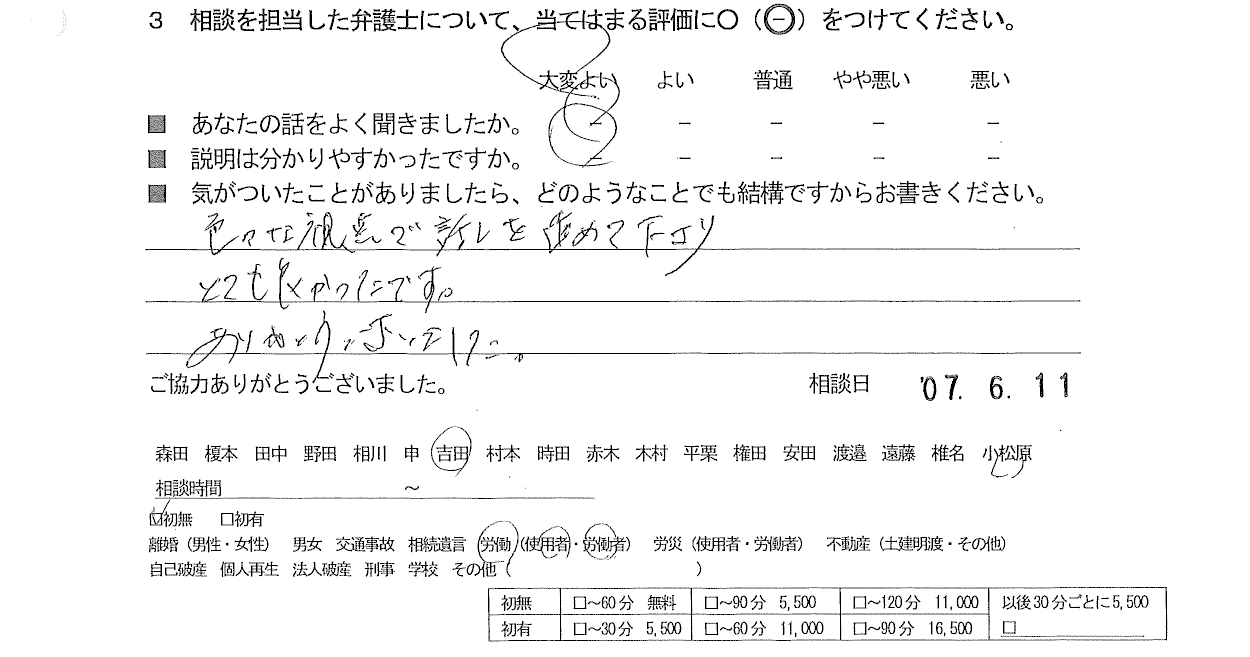 3 相談を担当した弁護士について、当てはまる評価に〇（㊀）をつけてください。
大変よい よい 普通 やや悪い 悪い
■ あなたの話をよく聞きましたか。 － － － － －
■ 説明は分かりやすかったですか。 － － － － －
■ 気がついたことがありましたら、どのようなことでも結構ですからお書きください。
色々な視点で話しを進めて下さり
とても良かったです。
ありがとうございました。
ご協力ありがとうございました。 相談日 '07. 6. 11
森田 榎本 田中 野田 相川 申 吉田 村本 時田 赤木 木村 平栗 権田 安田 渡邉 遠藤 椎名 小松原
相談時間 ～
☑初無 □初有
離婚（男性・女性） 男女 交通事故 相続遺言 労働（使用者・労働者） 労災（使用者・労働者） 不動産（土建明渡・その他）
自己破産 個人再生 法人破産 刑事 学校 その他（ ）
初無 □～60分 無料 □～90分 5,500 □～120分 11,000 以後30分ごとに5,500
初有 □～30分 5,500 □～60分 11,000 □～90分 16,500 □